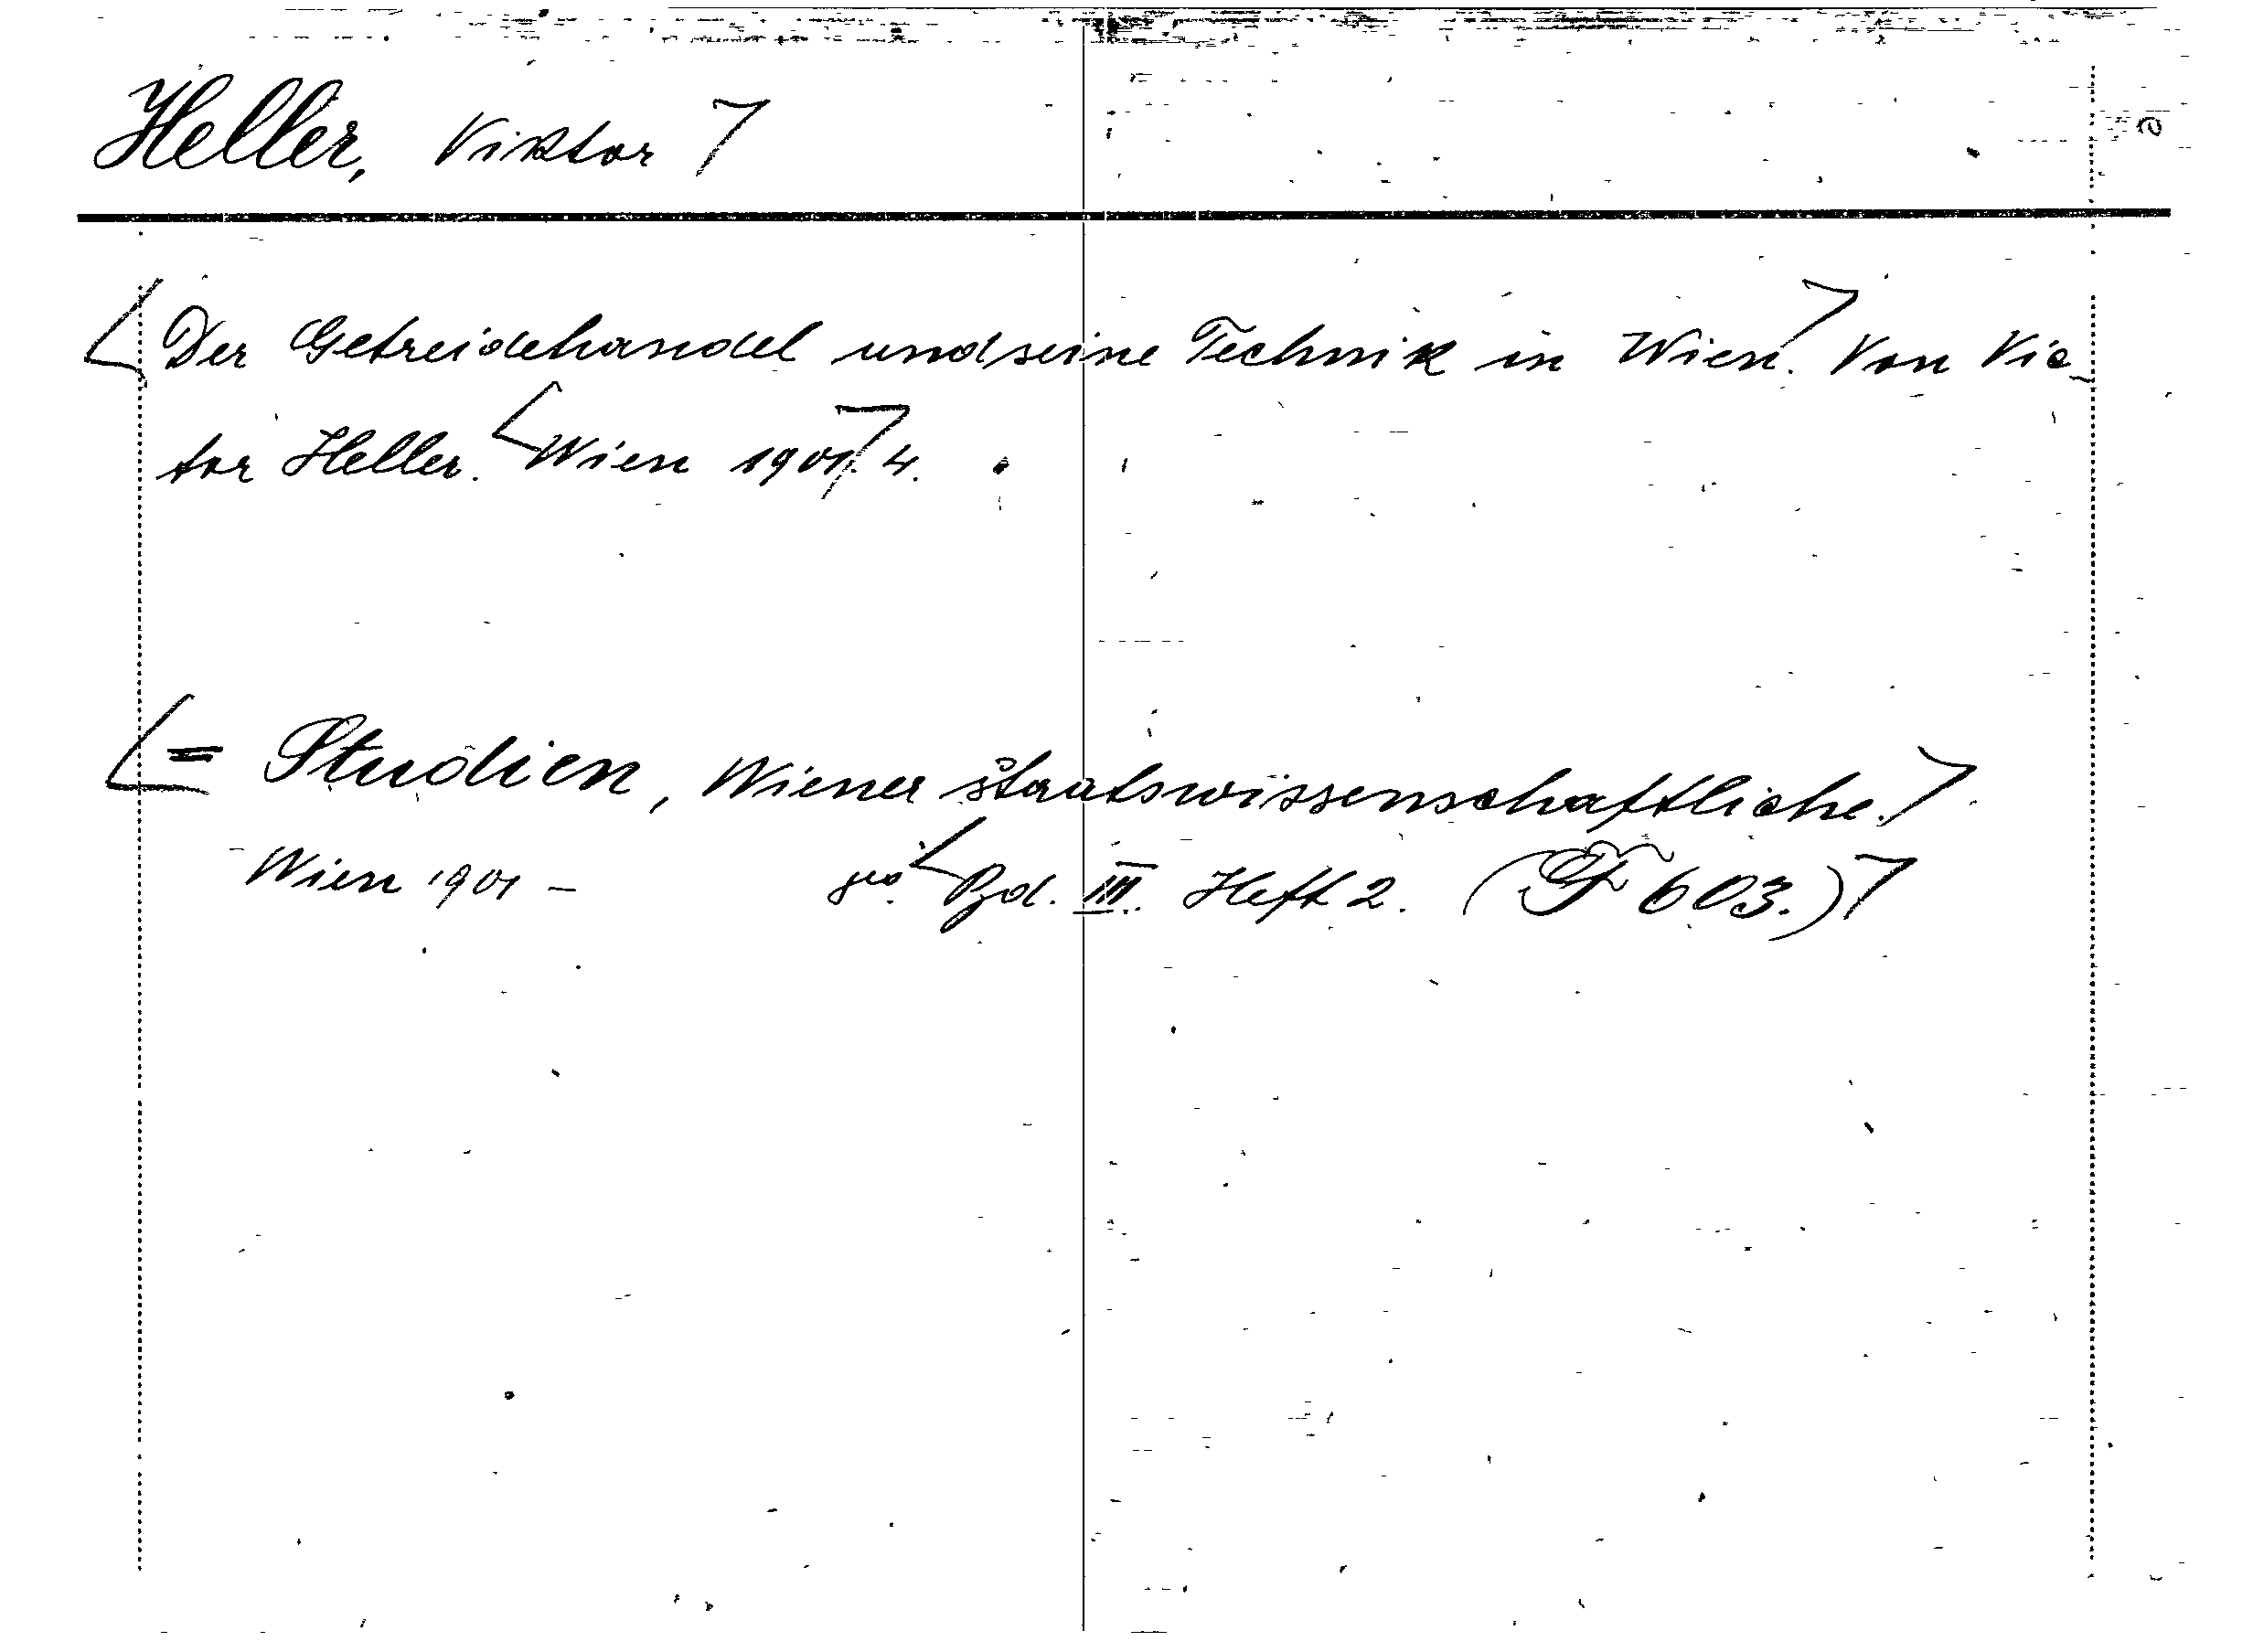 Heller, Viktor ⌉
⌊Der Getreidehandel und seine Technik in Wien.⌉ Von Vic-
tor Heller. ⌊Wien 1901.⌉ 4.
⌊= Studien, Wiener staatswissenschaftliche.⌉
Wien 1901 - ⌊Bd. III. Heft 2. (603.)⌉